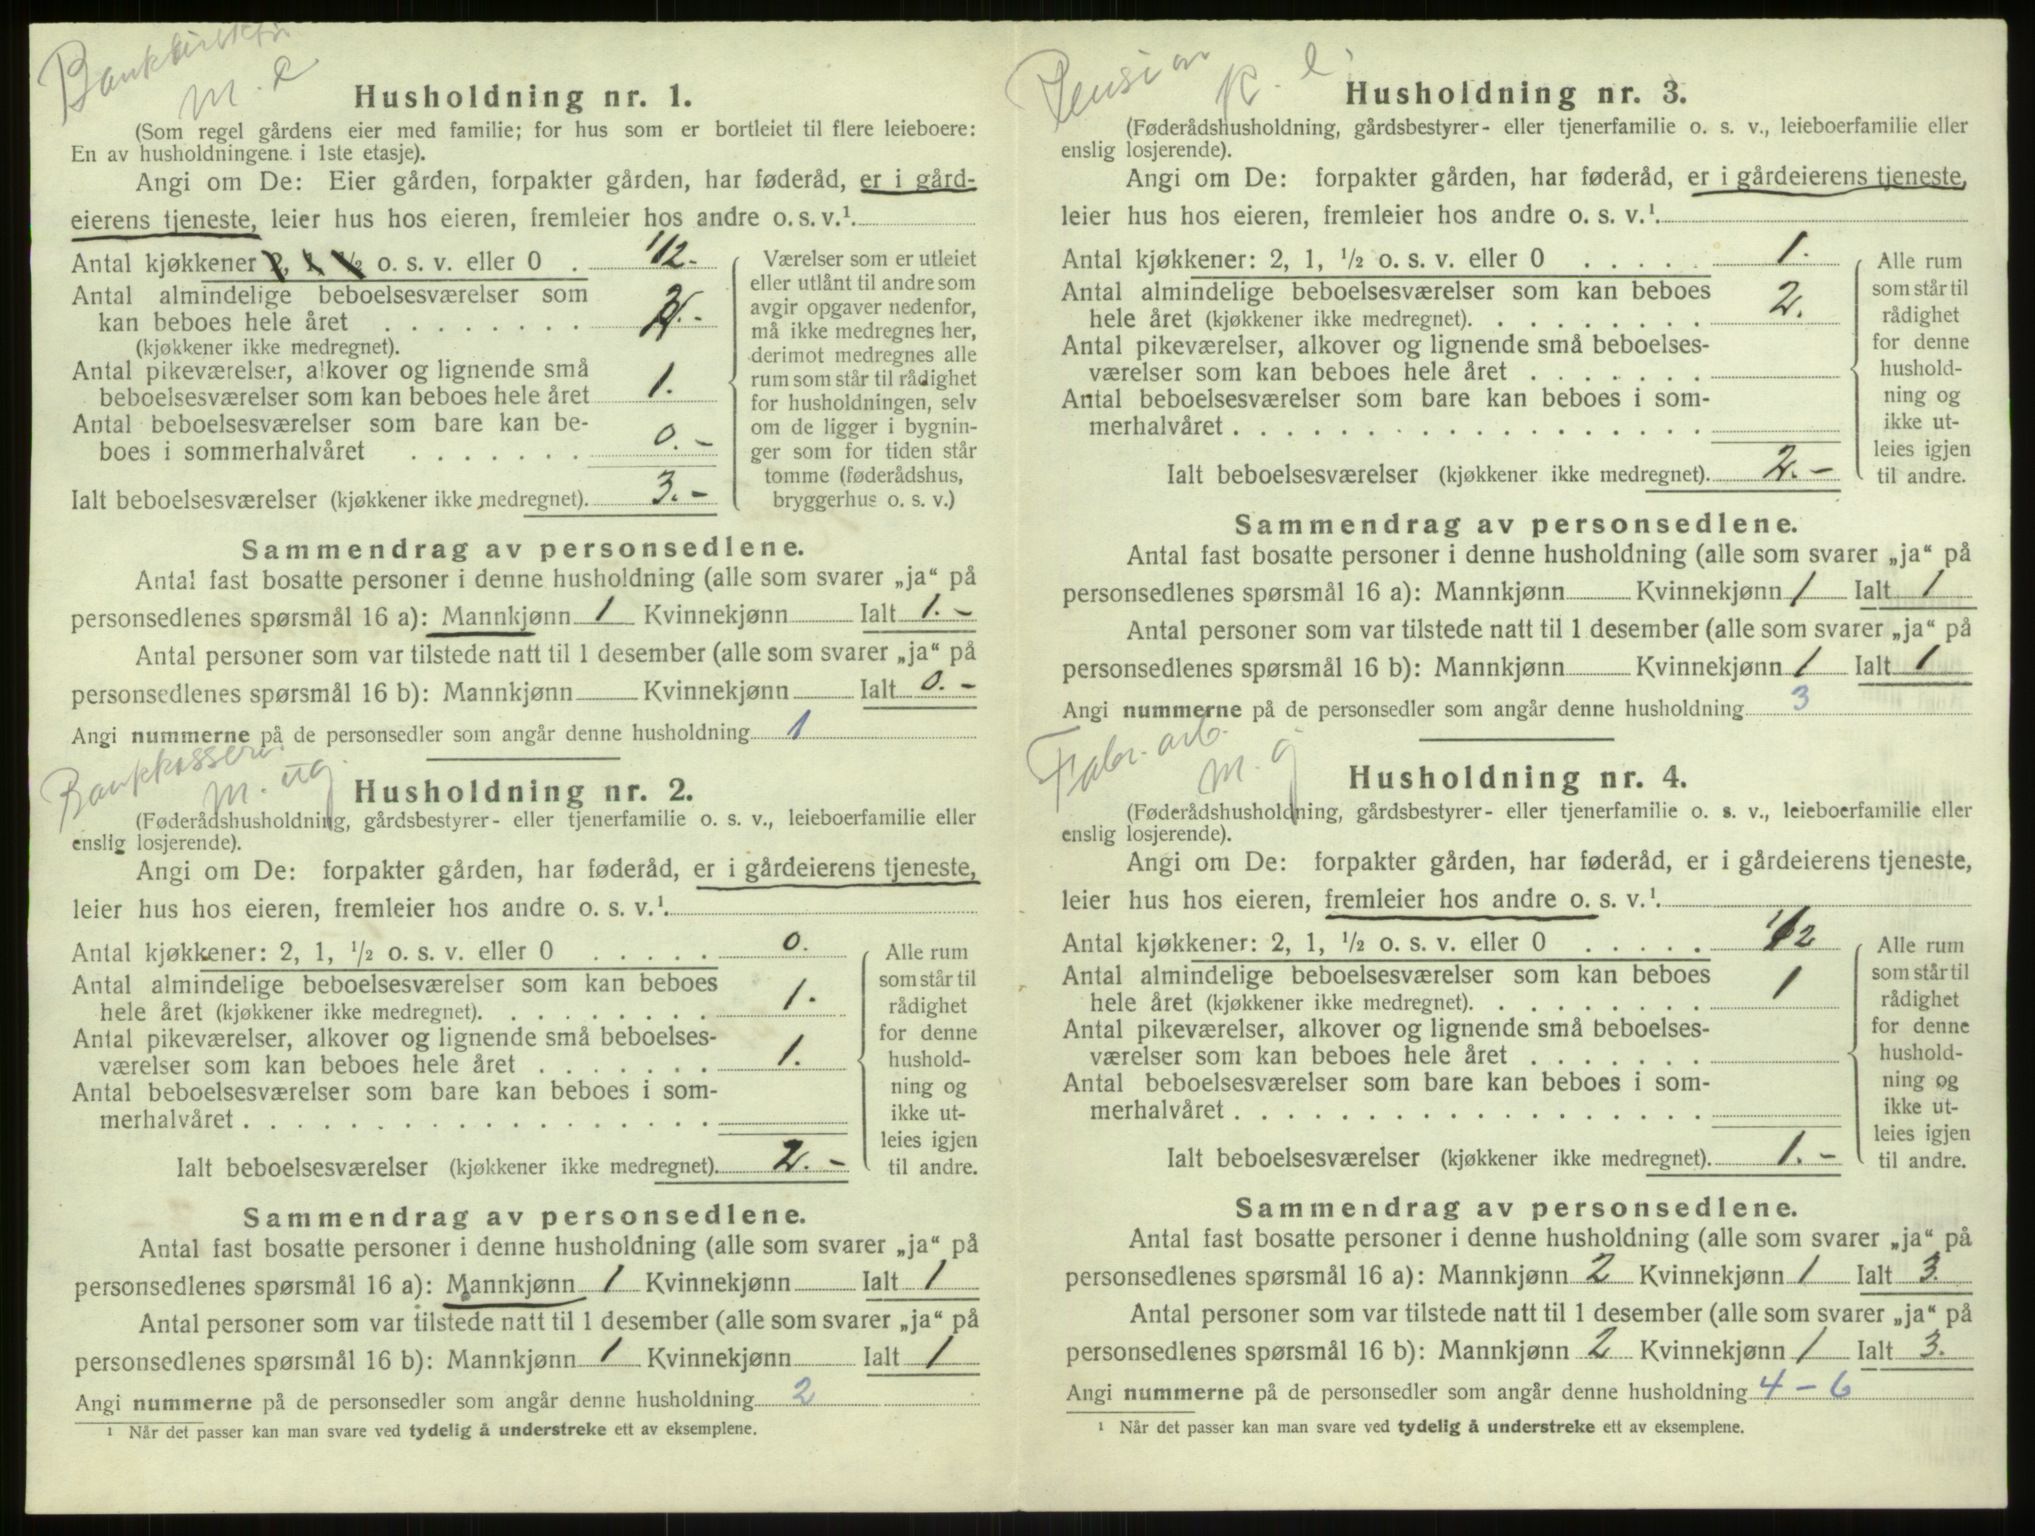 Bankdirektør
m. e
Husholdning nr. 1.
(Som regel gårdens eier med familie; for hus som er bortleiet til flere leieboere:
En av husholdningene i 1ste etasje).
Angi om De: Eier gården, forpakter gården, har føderåd, er i gård-
eierens tjeneste, leier hus hos eieren, fremleier hos andre o. s. v.¹.
Antal kjøkkener 2, 1, ½ o. s. v. eller 0 . 1/2.-
Antal almindelige beboelsesværelser som
kan beboes hele året . . . . . . . . 2.-
(kjøkkener ikke medregnet).
Antal pikeværelser, alkover og lignende små
beboelsesværelser som kan beboes hele året 1.
Antal beboelsesværelser som bare kan be-
boes i sommerhalvåret . . . . . . . 0.-
Ialt beboelsesværelser (kjøkkener ikke medregnet). 3.-
Værelser som er utleiet
eller utlånt til andre som
avgir opgaver nedenfor,
må ikke medregnes her,
derimot medregnes alle
rum som står til rådighet
for husholdningen, selv
om de ligger i bygnin-
ger som for tiden står
tomme (føderådshus,
bryggerhus o. s. v.)
Sammendrag av personsedlene.
Antal fast bosatte personer i denne husholdning (alle som svarer „ja“ på
personsedlenes spørsmål 16 a): Mannkjønn 1 Kvinnekjønn Ialt 1.-
Antal personer som var tilstede natt til 1 desember (alle som svarer „ja“ på
personsedlenes spørsmål 16 b): Mannkjønn Kvinnekjønn Ialt 0.-
Angi nummerne på de personsedler som angår denne husholdning 1
Bankkasserer
m. ug.
Husholdning nr. 2.
(Føderådshusholdning, gårdsbestyrer- eller tjenerfamilie o. s. v., leieboerfamilie eller
enslig losjerende).
Angi om De: forpakter gården, har føderåd, er i gårdeierens tjeneste,
leier hus hos eieren, fremleier hos andre o. s. v.¹.
Antal kjøkkener: 2, 1, ½ o. s. v. eller 0 . . . . . 0.
Antal almindelige beboelsesværelser som kan beboes
hele året (kjøkkener ikke medregnet). . . . . . . . . 1.
Antal pikeværelser, alkover og lignende små beboelses-
værelser som kan beboes hele året . . . . . . . 1.
Antal beboelsesværelser som bare kan beboes i som-
merhalvåret . . . . . . . . . . . . . . . . . .
Ialt beboelsesværelser (kjøkkener ikke medregnet). 2.-
Alle rum
som står til
rådighet
for denne
hushold-
ning og
ikke ut-
leies igjen
til andre.
Sammendrag av personsedlene.
Antal fast bosatte personer i denne husholdning (alle som svarer „ja“ på
personsedlenes spørsmål 16 a): Mannkjønn 1 Kvinnekjønn Ialt 1
Antal personer som var tilstede natt til 1 desember (alle som svarer „ja“ på
personsedlenes spørsmål 16 b): Mannkjønn 1 Kvinnekjønn Ialt 1
Angi nummerne på de personsedler som angår denne husholdning 2
¹ Når det passer kan man svare ved tydelig å understreke ett av eksemplene.
Pension
K. e
Husholdning nr. 3.
(Føderådshusholdning, gårdsbestyrer- eller tjenerfamilie o. s. v., leieboerfamilie eller
enslig losjerende).
Angi om De: forpakter gården, har føderåd, er i gårdeierens tjeneste,
leier hus hos eieren, fremleier hos andre o. s. v.¹.
Antal kjøkkener: 2, 1, ½ o. s. v. eller 0 . . . . . 1.
Antal almindelige beboelsesværelser som kan beboes
hele året (kjøkkener ikke medregnet). . . . . . . . . 2.
Antal pikeværelser, alkover og lignende små beboelses-
værelser som kan beboes hele året . . . . . . .
Antal beboelsesværelser som bare kan beboes i som-
merhalvåret . . . . . . . . . . . . . . . . . .
Ialt beboelsesværelser (kjøkkener ikke medregnet). 2.-
Alle rum
som står til
rådighet
for denne
hushold-
ning og
ikke ut-
leies igjen
til andre.
Sammendrag av personsedlene.
Antal fast bosatte personer i denne husholdning (alle som svarer „ja“ på
personsedlenes spørsmål 16 a): Mannkjønn Kvinnekjønn 1 Ialt 1
Antal personer som var tilstede natt til 1 desember (alle som svarer „ja“ på
personsedlenes spørsmål 16 b): Mannkjønn Kvinnekjønn 1 Ialt 1
Angi nummerne på de personsedler som angår denne husholdning 3
Fabr. arb.
m. g
Husholdning nr. 4.
(Føderådshusholdning, gårdsbestyrer- eller tjenerfamilie o. s. v., leieboerfamilie eller
enslig losjerende).
Angi om De: forpakter gården, har føderåd, er i gårdeierens tjeneste,
leier hus hos eieren, fremleier hos andre o. s. v.¹.
Antal kjøkkener: 2, 1, ½ o. s. v. eller 0 . . . . . 1/2
Antal almindelige beboelsesværelser som kan beboes
hele året (kjøkkener ikke medregnet). . . . . . . . . 1
Antal pikeværelser, alkover og lignende små beboelses-
værelser som kan beboes hele året . . . . . . .
Antal beboelsesværelser som bare kan beboes i som-
merhalvåret . . . . . . . . . . . . . . . . . .
Ialt beboelsesværelser (kjøkkener ikke medregnet). 1.-
Alle rum
som står til
rådighet
for denne
hushold-
ning og
ikke ut-
leies igjen
til andre.
Sammendrag av personsedlene.
Antal fast bosatte personer i denne husholdning (alle som svarer „ja“ på
personsedlenes spørsmål 16 a): Mannkjønn 2 Kvinnekjønn 1 Ialt 3.
Antal personer som var tilstede natt til 1 desember (alle som svarer „ja“ på
personsedlenes spørsmål 16 b): Mannkjønn 2 Kvinnekjønn 1 Ialt 3.
Angi nummerne på de personsedler som angår denne husholdning 4 - 6
¹ Når det passer kan man svare ved tydelig å understreke ett av eksemplene.